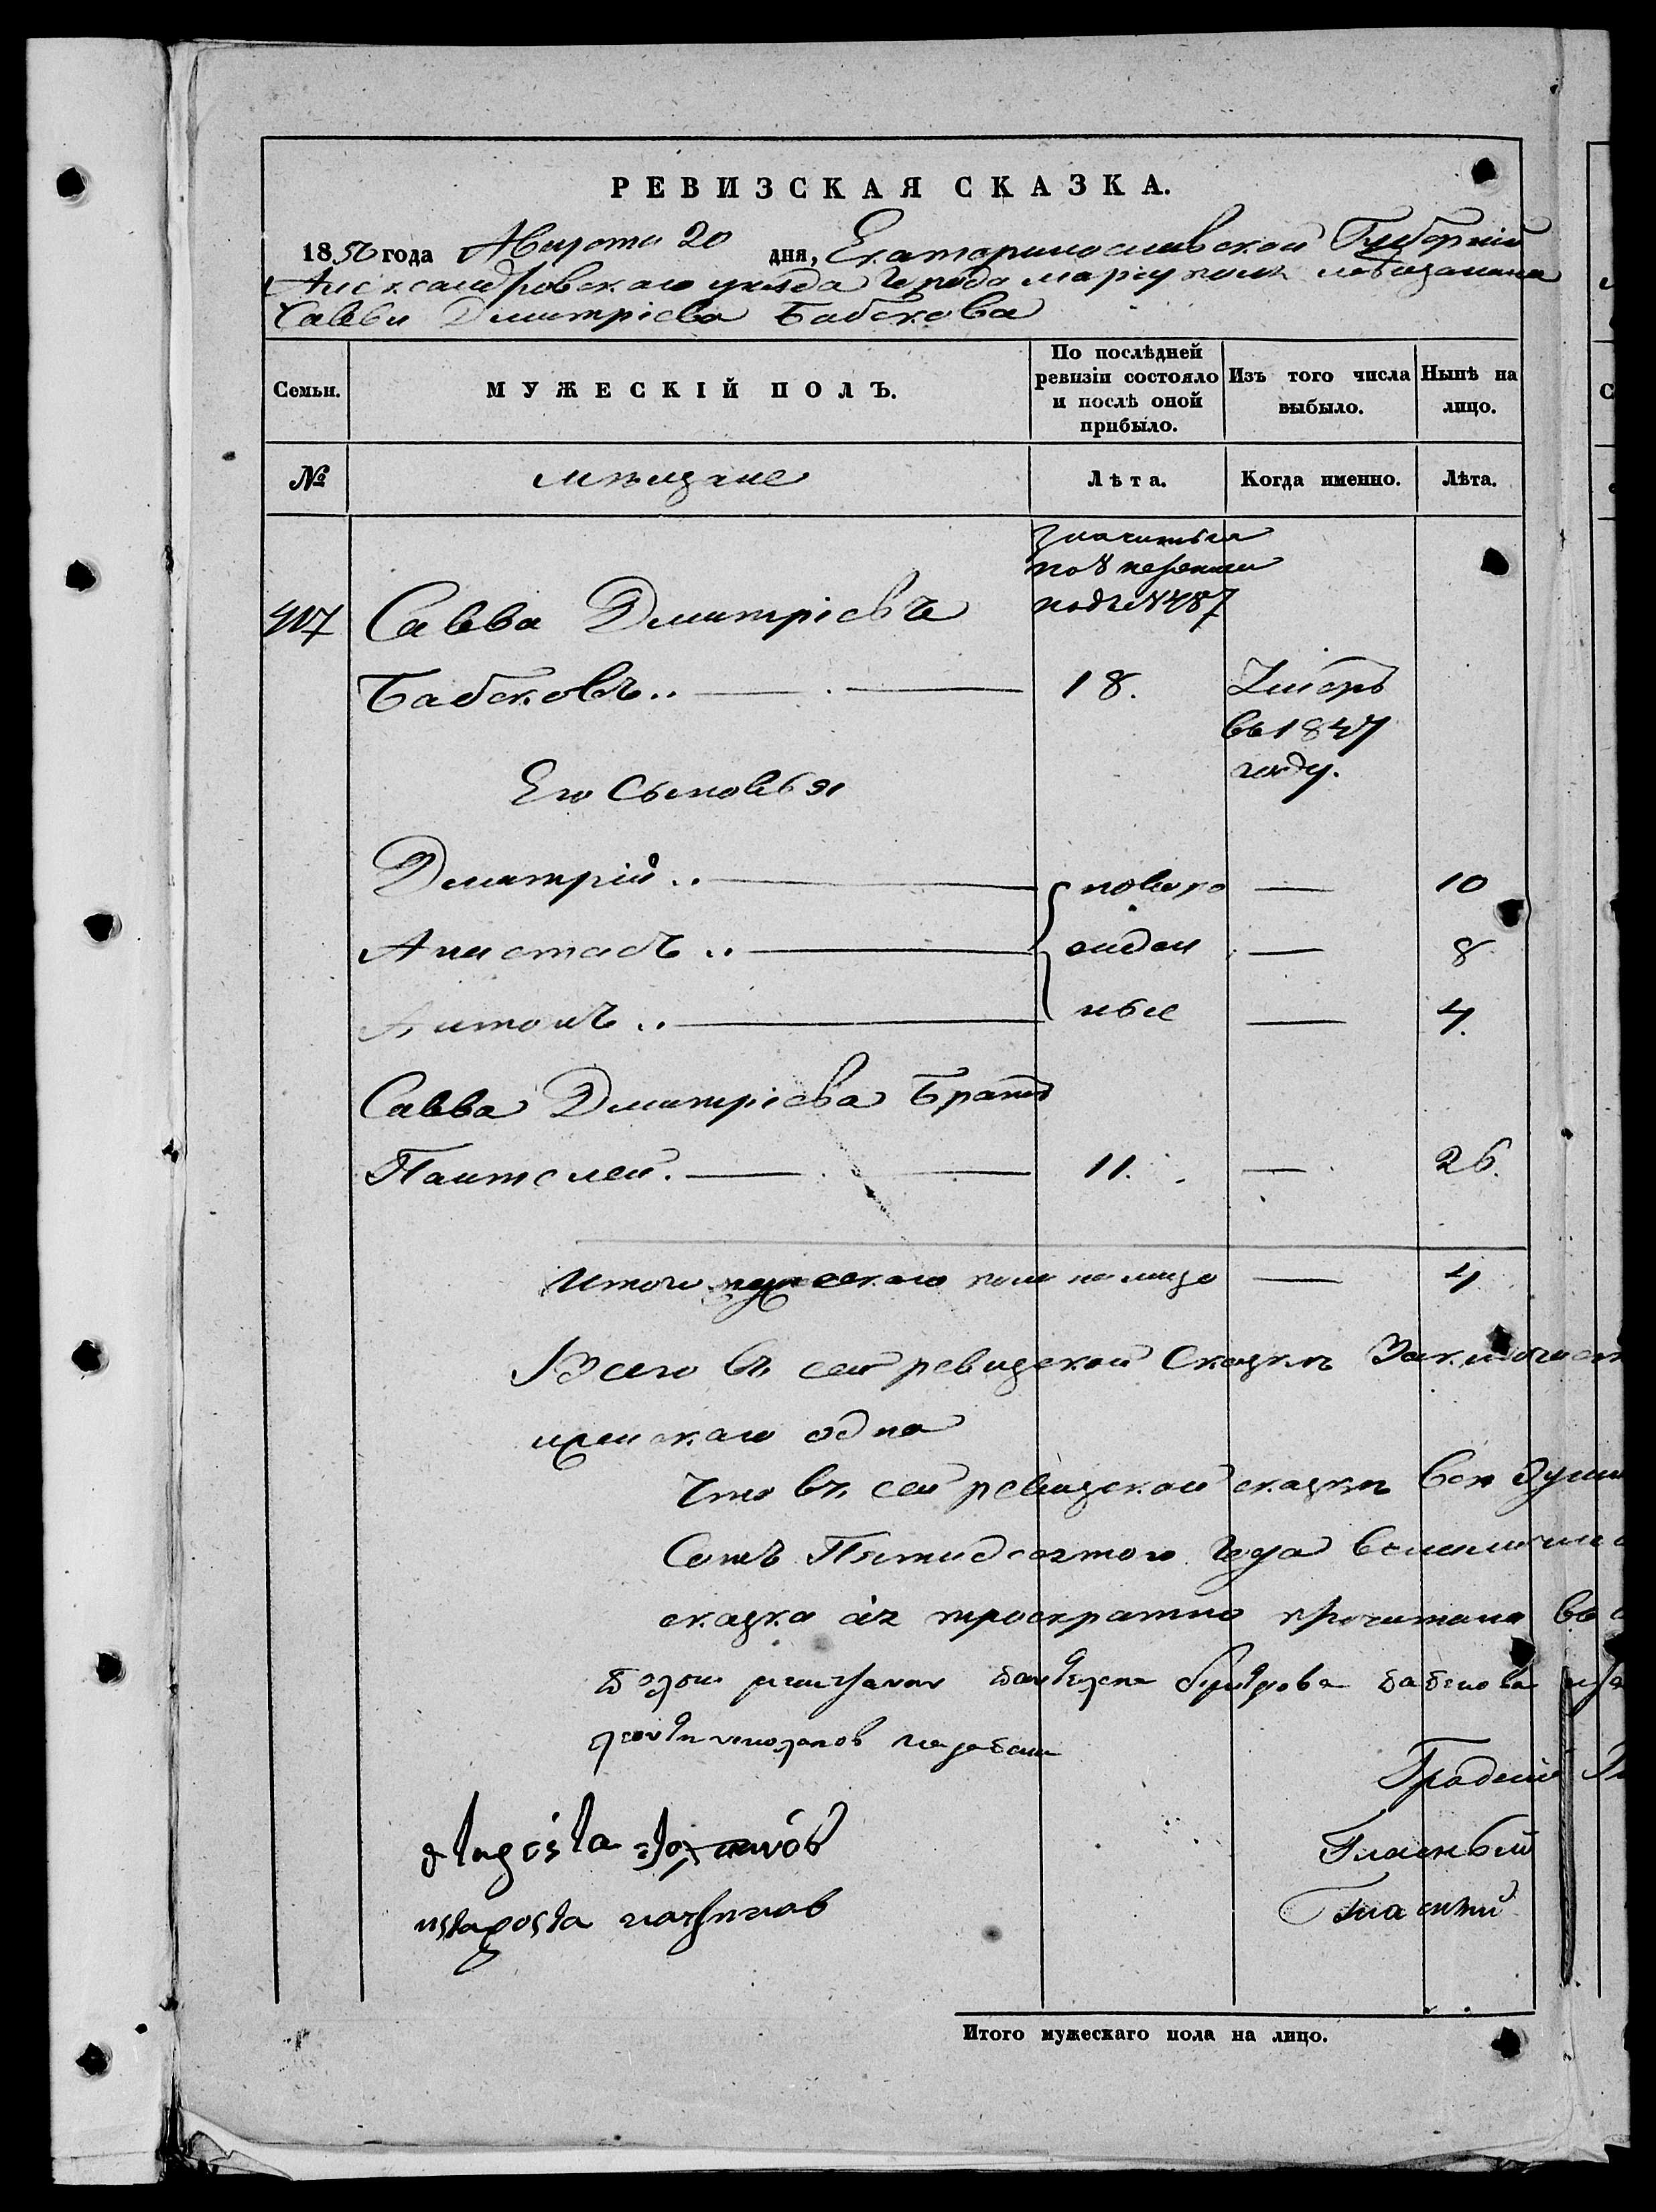 РЕВИЗСКАЯ СКАЗКА.
1850 года Августа 20 дня, Екатеринославской Губернии
Александровскаго уѣзда Города Мариуполя мѣщанина
Саввы Дмитріева Бабекова
Семьи.
МУЖЕСКІЙ ПОЛЪ.
По послѣдней ревизіи состояло и послѣ оной прибыло.
Изъ того числа выбыло.
Нынѣ на лицо.
№
мѣщане
Лѣта.
Когда именно.
Лѣта.
значится
по 8 ревизии
под №
Савва Дмитріевъ
Бабековъ.. 18. Умеръ
въ 1847
году.
Его Сыновья
Дмитрій.. новоро — 10
Анастасъ.. жден — 8
Антонъ.. ные — 4.
Савва Дмитріева Братъ
Пантелей. 11. — 26.
Итого мужескаго пола на лицо — 4
Всего въ сей ревизской Сказкѣ Заключает
женскаго одна
Что въ сей ревизской сказкѣ всѣ души
Сотъ Пятидесятого Года
сказка троекратно прочитана въ
Градскій
Гласный
Гласный
Итого мужескаго пола на лицо.